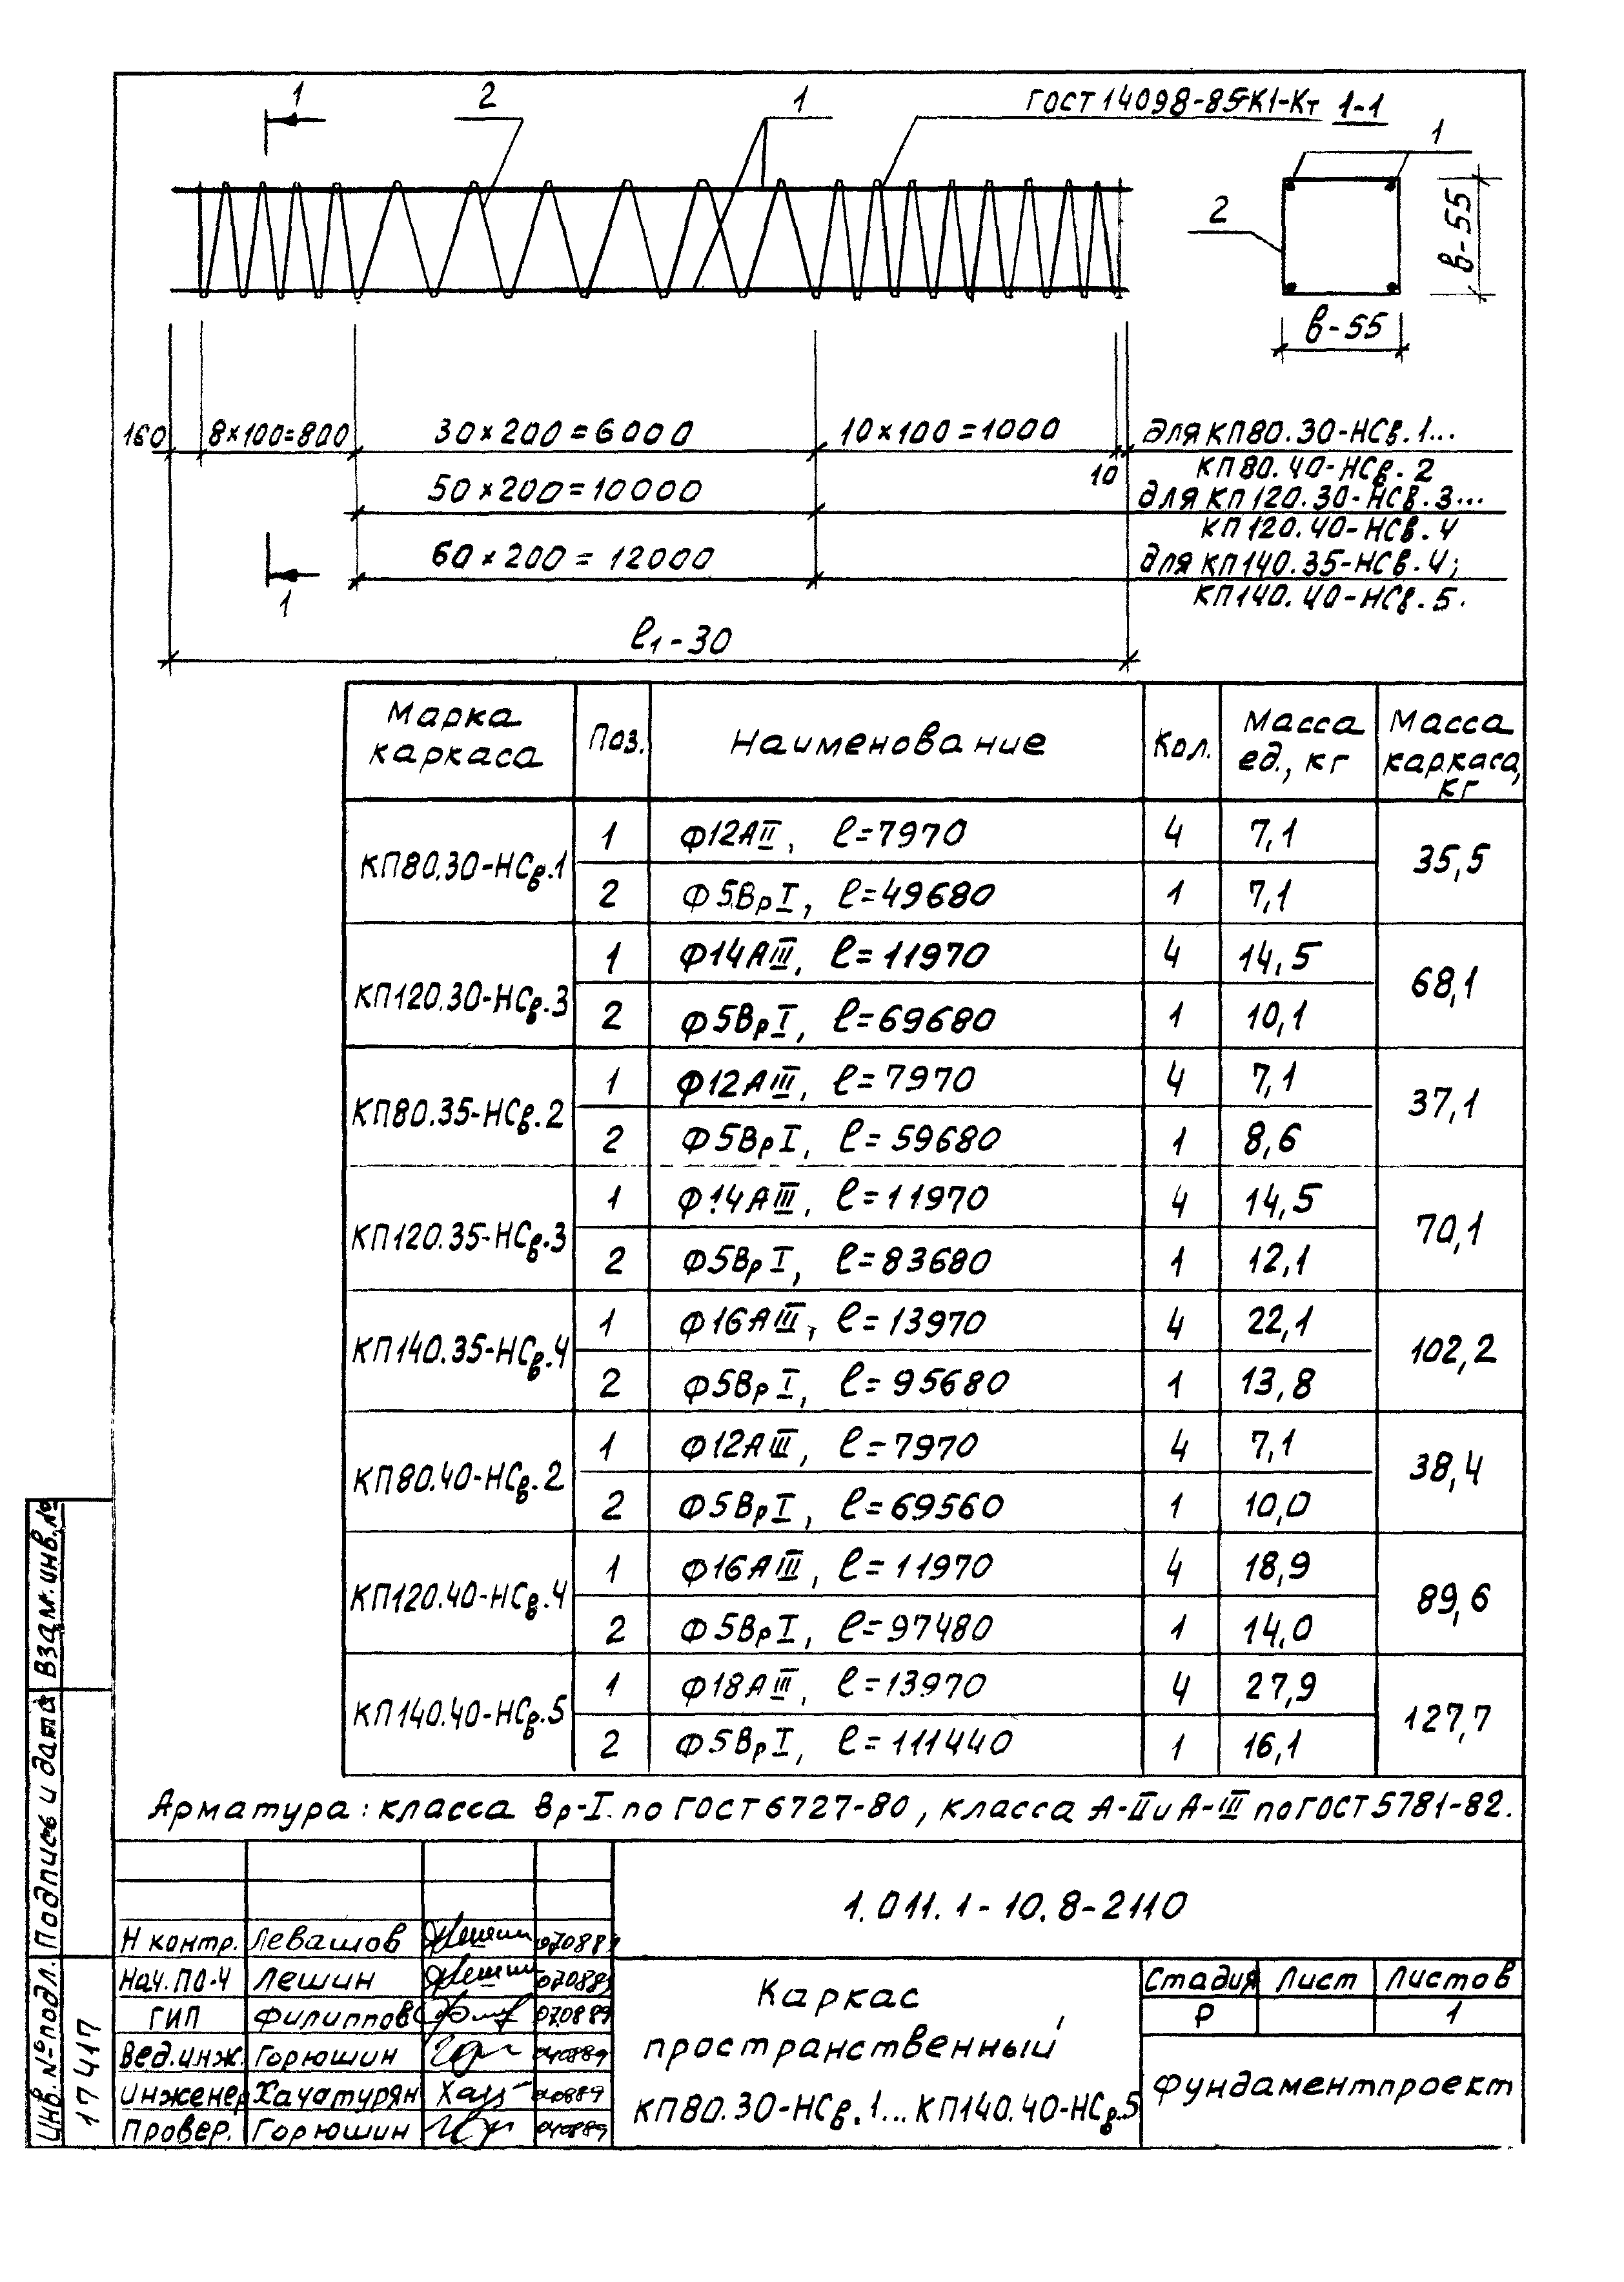 1
2
1
ГОСТ 14098-85-К1-Кт
1-1
1
2
в-55
в-55
160
8×100=800
30×200=6000
10×100=1000
10
для КП80.30-НСв.1...
КП80.40-НСв.2
50×200=10000
для КП120.30-НСв.3...
КП120.40-НСв.4
60×200=12000
для КП140.35-НСв.4;
КП140.40-НСв.5.
1
ℓ1-30
Марка каркаса Поз. Наименование Кол. Масса ед., кг Масса каркаса, кг
КП80.30-НСв.1 1 Ф12АII, ℓ=7970 4 7,1 35,5
2 Ф5ВрI, ℓ=49680 1 7,1
КП120.30-НСв.3 1 Ф14АIII, ℓ=11970 4 14,5 68,1
2 Ф5ВрI, ℓ=69680 1 10,1
КП80.35-НСв.2 1 Ф12АIII, ℓ=7970 4 7,1 37,1
2 Ф5ВрI, ℓ=59680 1 8,6
КП120.35-НСв.3 1 Ф14АIII, ℓ=11970 4 14,5 70,1
2 Ф5ВрI, ℓ=83680 1 12,1
КП140.35-НСв.4 1 Ф16АIII, ℓ=13970 4 22,1 102,2
2 Ф5ВрI, ℓ=95680 1 13,8
КП80.40-НСв.2 1 Ф12АIII, ℓ=7970 4 7,1 38,4
2 Ф5ВрI, ℓ=69560 1 10,0
КП120.40-НСв.4 1 Ф16АIII, ℓ=11970 4 18,9 89,6
2 Ф5ВрI, ℓ=97480 1 14,0
КП140.40-НСв.5 1 Ф18АIII, ℓ=13970 4 27,9 127,7
2 Ф5ВрI, ℓ=111440 1 16,1
Арматура: класса Вр-I по ГОСТ 6727-80, класса А-II и А-III по ГОСТ 5781-82.
1.011.1-10.8-2110
Н контр. Левашов 070889
Нач.ПО-4 Лешин 070889
ГИП Филиппов 070889
Вед.инж. Горюшин 040889
инженер Хачатурян Хач 040889
Провер. Горюшин 040889
Каркас
пространственный
КП80.30-НСв.1...КП140.40-НСв.5
Стадия Лист Листов
Р 1
Фундаментпроект
Взам.инв.№
Подпись и дата
Инв.№подл.
17417